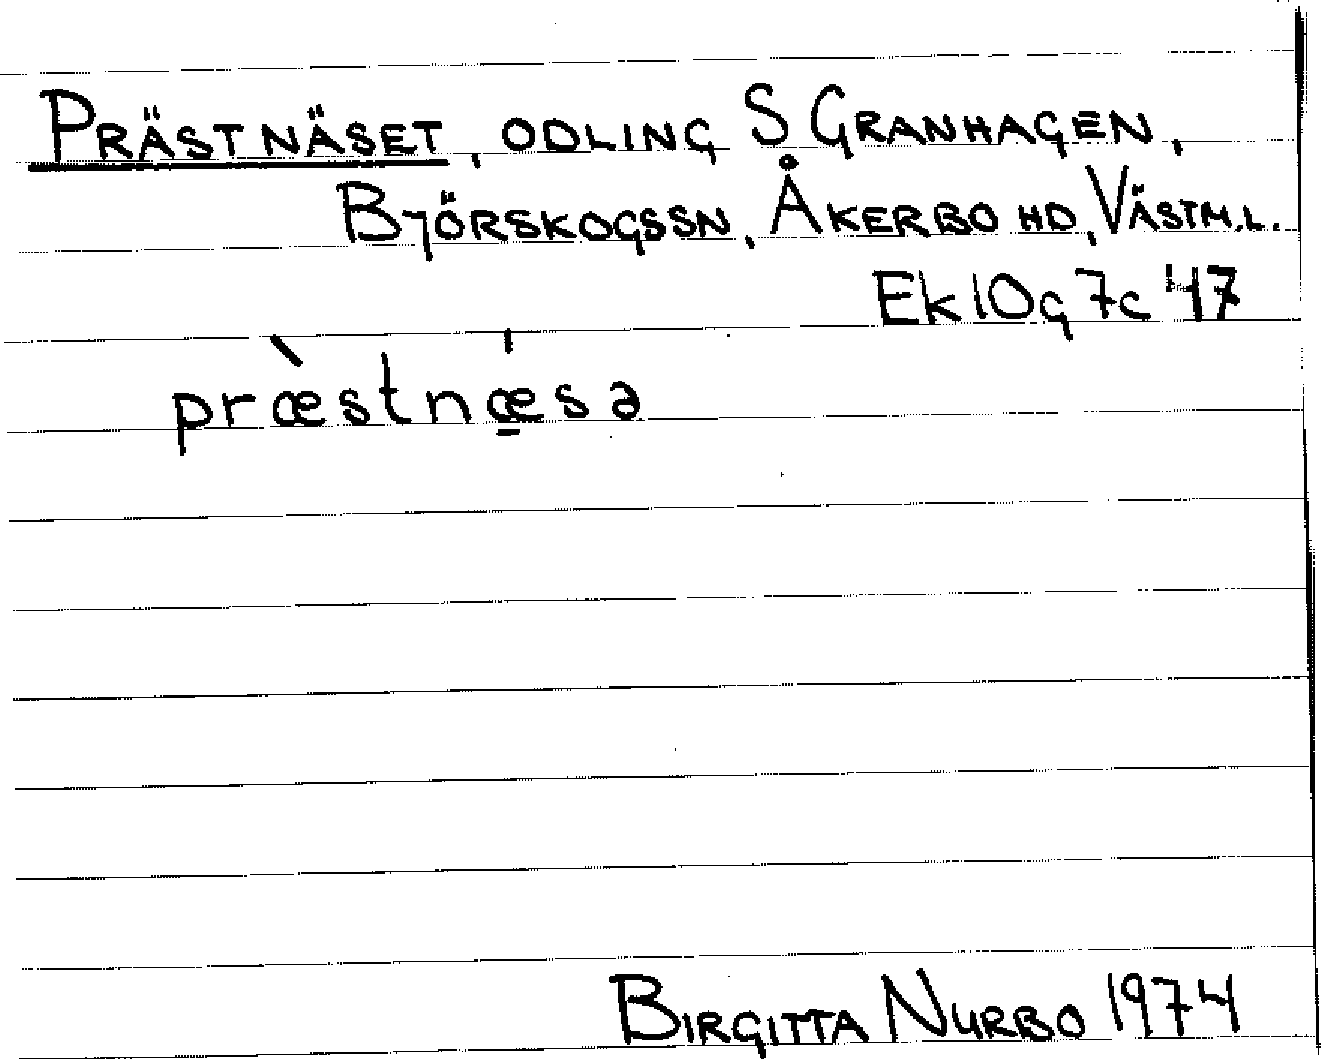 PRÄSTNÄSET, ODLING S GRANHAGEN,
BJÖRSKOGSSN, ÅKERBO HD, VÄSTM.L.
Ek 10g 7c 47
præ̀stnǽ̱sə
BIRGITTA NURBO 1974